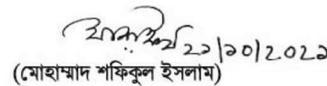 ২১/১০/২০২১
(মোহাম্মাদ শফিকুল ইসলাম)